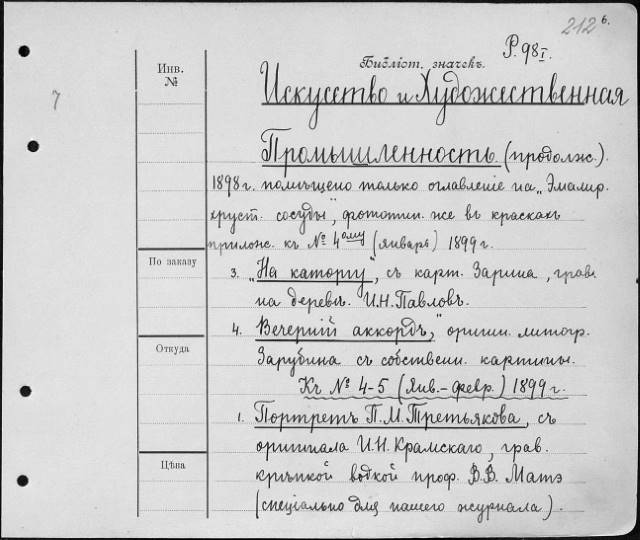 212 б.
Р. 98 I.
Библіот. значекъ.
Инв. №
7
Искусство и Художественная
Промышленность. (продолж.).
1898 г. помѣщено только оглавленіе на „Эмалир.
хруст. сосуды", фототип. же въ краскахъ
прилож. къ № 4ому (январь) 1899 г.
По заказу
3. „На каторгу", съ карт. Зарина, грав.
на деревѣ И.Н. Павловъ.
4. Вечерній аккордъ," оригин. литогр.
Откуда
Зарубина съ собственн. картины.
Къ № 4-5 (Янв.-февр.) 1899 г.
1. Портретъ П.М. Третьякова, съ
оригинала И.Н. Крамскаго, грав.
Цѣна
крѣпкой водкой проф. В.В. Матэ
(спеціально для нашего журнала).